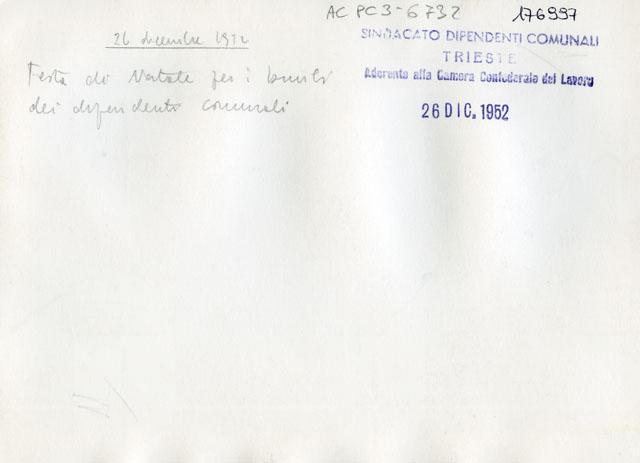 AC PC 3-6732
176997
SINDACATO DIPENDENTI COMUNALI
TRIESTE
Aderente alla Camera Confederale del Lavoro
26 DIC. 1952
26 dicembre 1952
Festa di Natale per i bimbi
dei dipendenti comunali